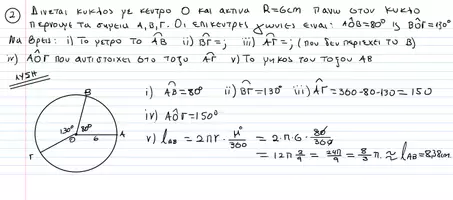 ② Δινεται κυκλος με κεντρο Ο και ακτινα R=6cm πανω στον κυκλο
παιρνουμε τα σημεια Α,Β,Γ. Οι επικεντρες γωνιες ειναι: AÔB=80° ις BÔΓ=130°
Να βρεις: i) Το μετρο το AB̂ ii) BΓ̂=; iii) AΓ̂=; (που δεν περιεχει το Β)
iv) AÔΓ που αντιστοιχει στο τοξο AΓ̂ v) Το μηκος του τοξου ΑΒ
ΛΥΣΗ
i) AB̂=80° ii) BΓ̂=130° iii) AΓ̂=360-80-130=150
iv) AÔΓ=150°
v) l_AB = 2πr · μ°/360 = 2·π·6 · 80/360
= 12π 2/9 = 24π/9 = 8/3 π. ≈ l_AB = 8,38cm.
B
130° 80°
O 6 A
Γ